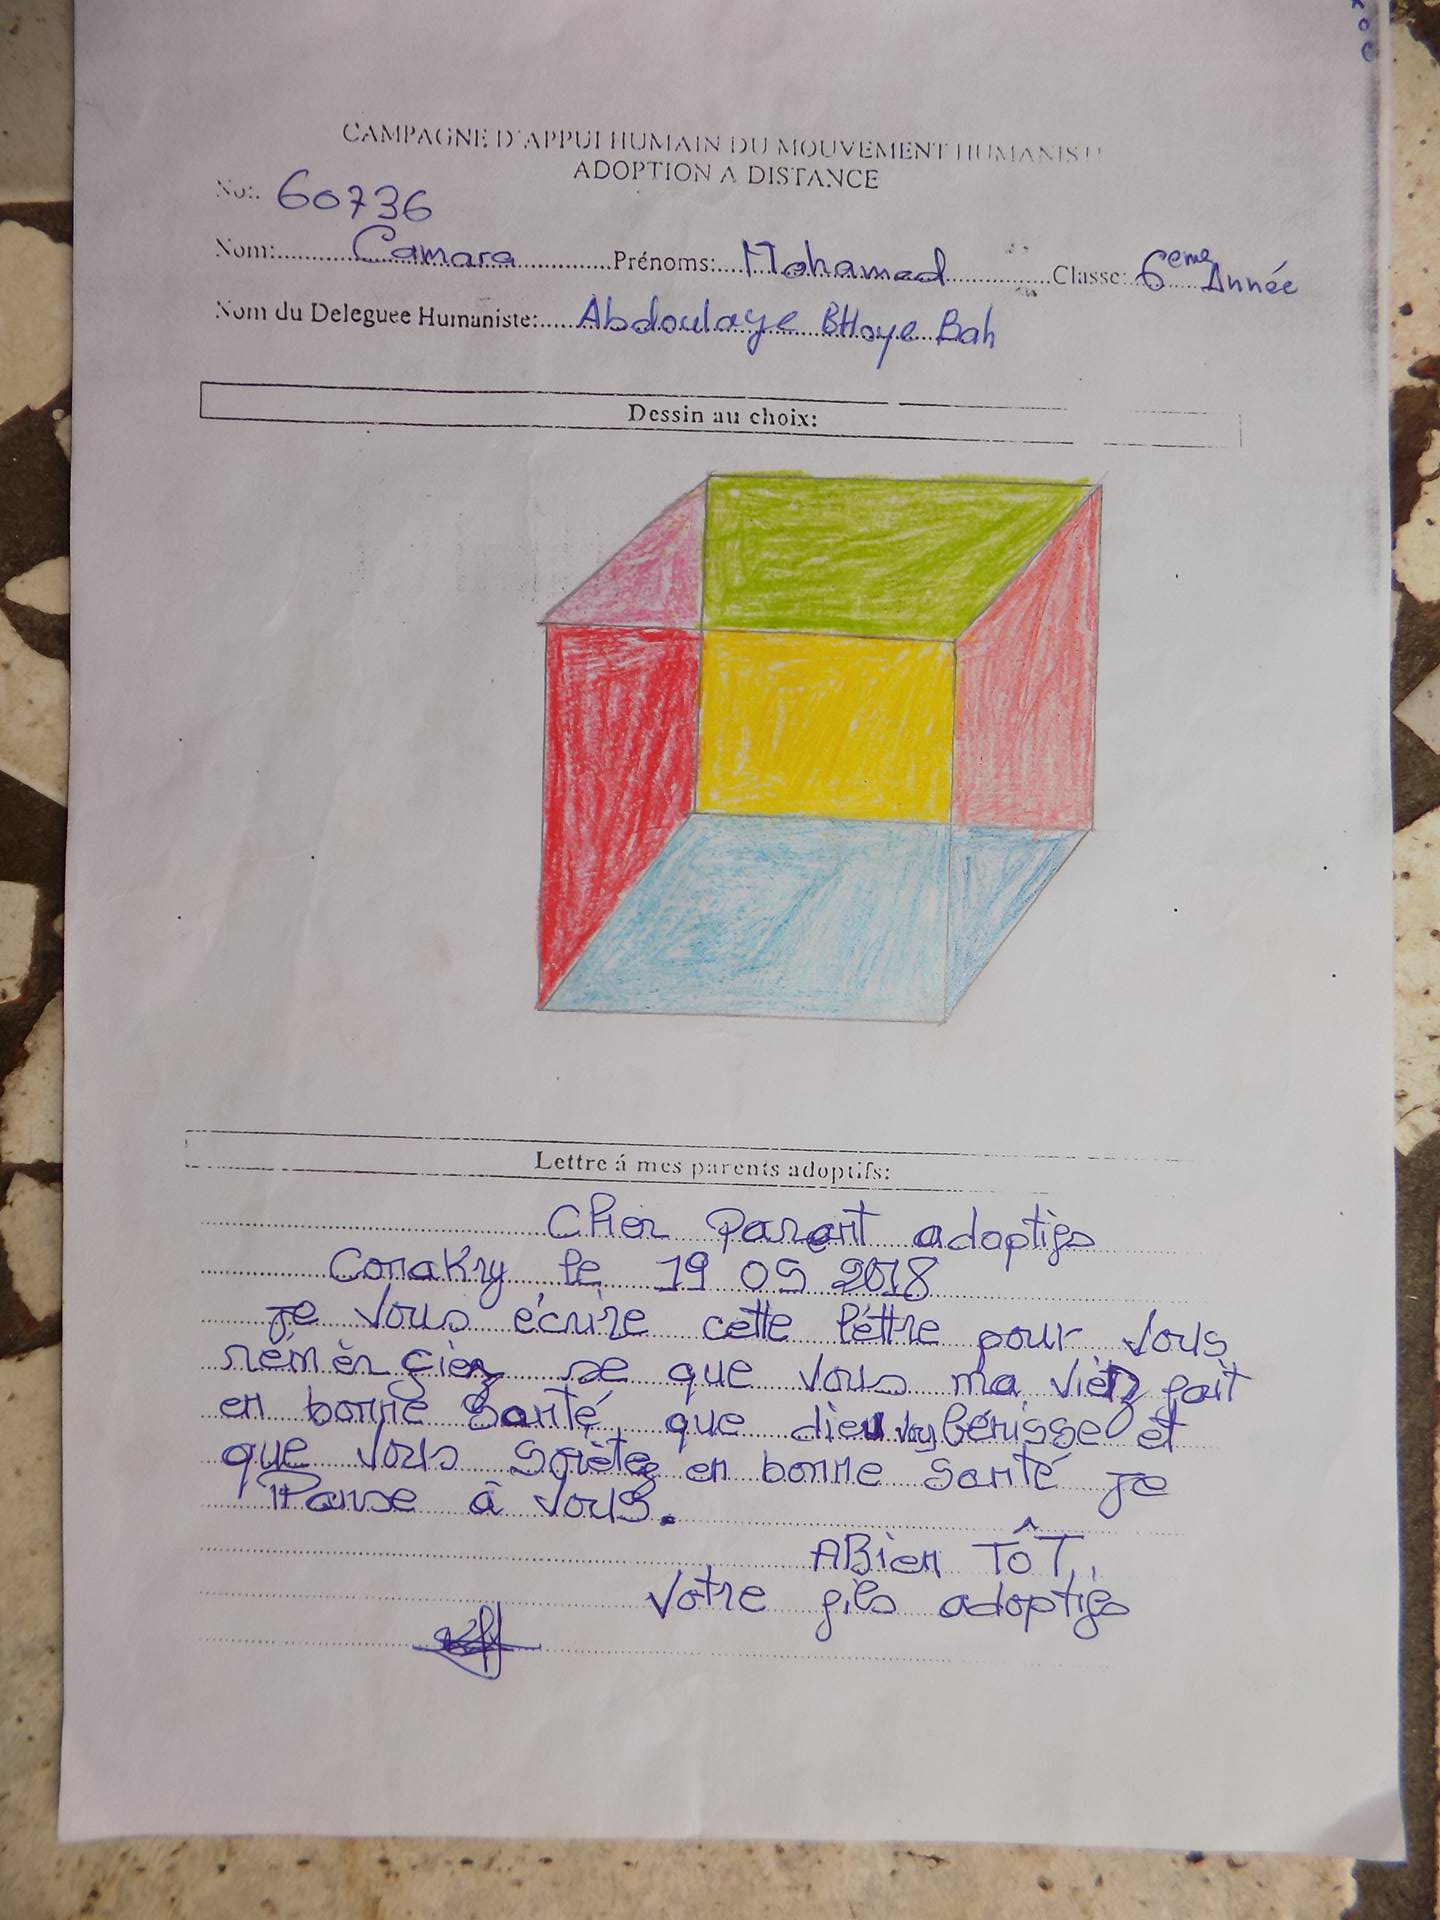 CAMPAGNE D'APPUI HUMAIN DU MOUVEMENT HUMANIST
ADOPTION A DISTANCE
No: 60736
Nom: Camara Prénoms: Mohamed Classe: 6eme Année
Nom du Deleguee Humaniste: Abdoulaye BHoye Bah
Dessin au choix:
Lettre á mes parents adoptifs:
Cher Parent adoptifs
Conakry, le 19 05 2018
je vous écrire cette léttre pour vous
rémèrçiez se que vous ma vièz fait
en bonne Santé, que dieu vous bénisse et
que vous Soiètes en bonne Santé je
Panse à vous.
ABien TÔT,
Votre fils adoptifs